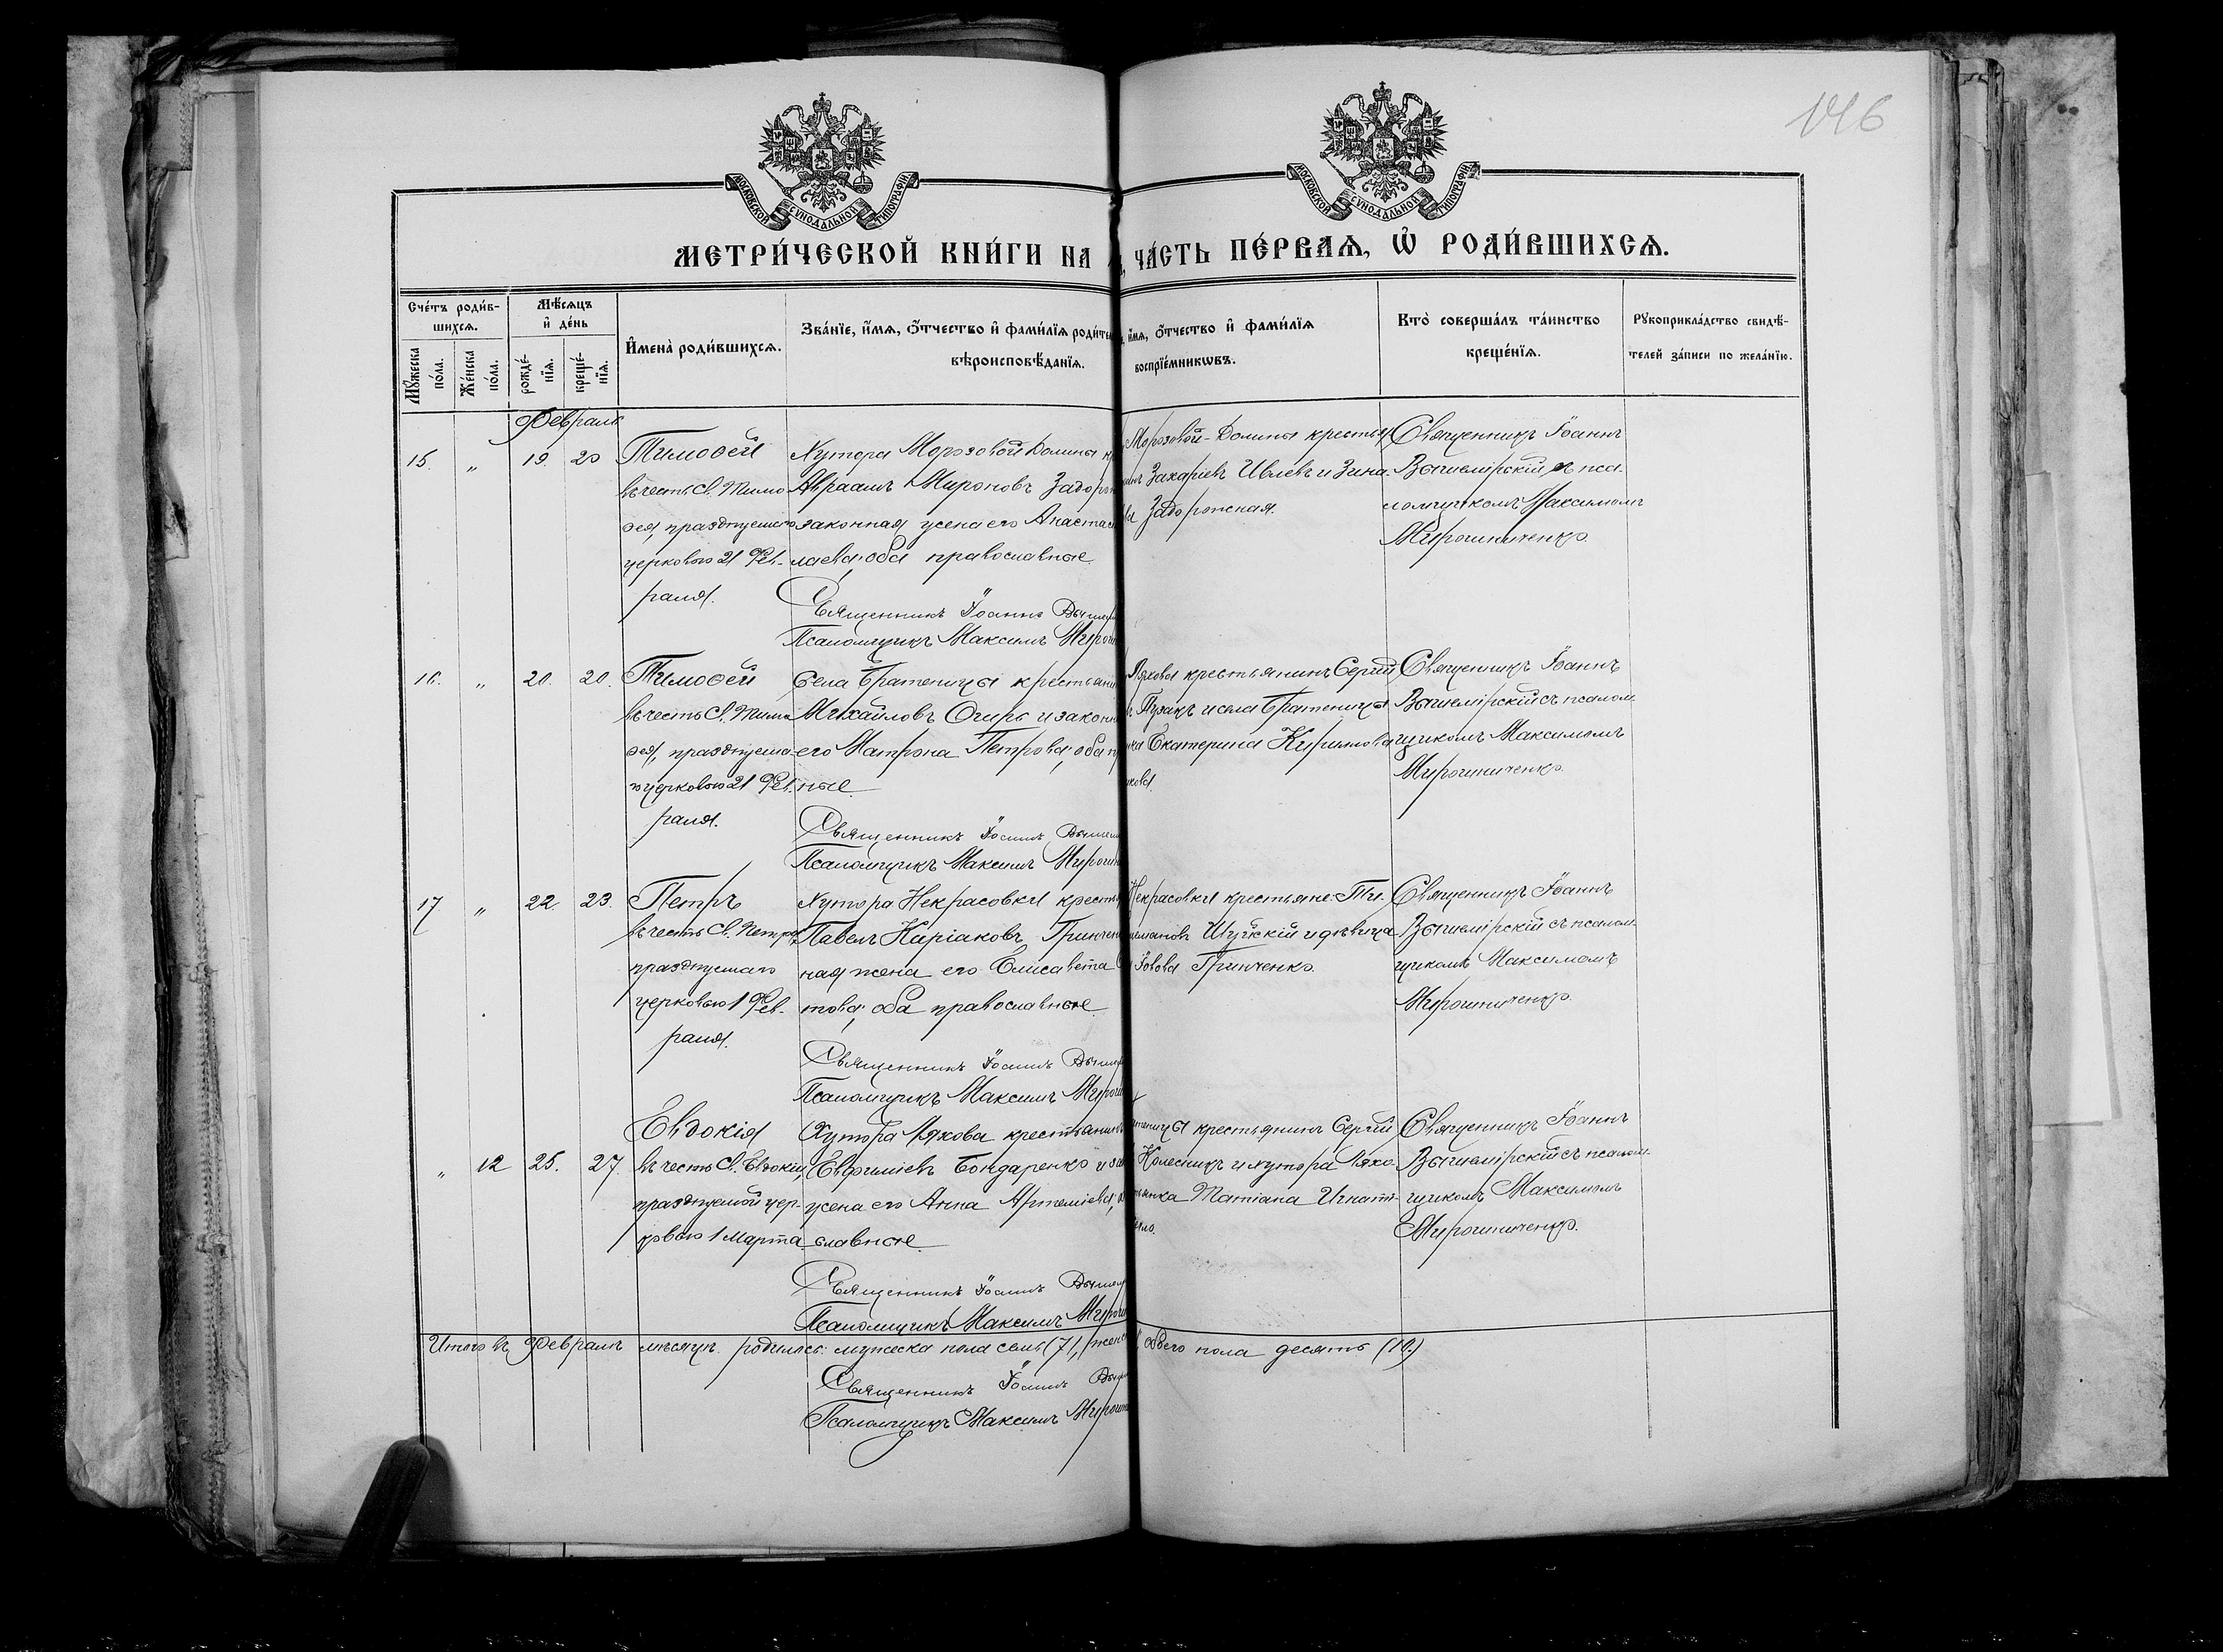 146
МОСКОВСКОЙ СѴНОДАЛЬНОЙ ТИПОГРАФІИ
МОСКОВСКОЙ СѴНОДАЛЬНОЙ ТИПОГРАФІИ
МЕТРИ́ЧЕСКОЙ КНИ́ГИ НА
ЧА́СТЬ ПЕ́РВАѦ, Ѡ҆ РОДИ́ВШИХСѦ.
Сче́тъ роди́в-
шихсѧ.
Мꙋ́жеска
по́ла.
Же́нска
по́ла.
Мѣ́сѧцъ
и҆ де́нь
рожде́-
нїѧ.
креще́-
нїѧ.
И҆мена̀ роди́вшихсѧ.
Зва́нїе, и҆́мѧ, ѻ҆́тчество и҆ фами́лїѧ роди́те
вѣроисповѣ́данїѧ.
и҆́мѧ, ѻ҆́тчество и҆ фами́лїѧ
воспрїе́мникѡвъ.
Кто̀ соверша́лъ та́инство
креще́нїѧ.
Рꙋкоприкла́дство свидѣ́-
телей за́писи по жела́нїю.
Февраля
15. " 19. 20
Тимоѳей
въ честь Св. Тимо
ѳея, празднуемаго
церковью 21 Фев-
раля.
Хутора Морозовой Долины
Авраамъ Мироновъ Задорож
законная жена его Анастас
лаева, оба православные
Священникъ Іоаннъ Вышем
Псаломщикъ Максимъ Мирош
Морозовой-Долины крестья
Захаріевъ Ивлевъ и Зина-
ва Задорожная.
Священникъ Іоаннъ
Вышемірскій съ пса-
ломщикомъ Максимомъ
Мирошниченко
16. " 20. 20.
Тимоѳей
въ честь Св. Тимо
ѳея, празднуема-
го церковью 21 Фев-
раля.
Села Братеницы крестьянин
Михайловъ Огирь и законн
его Матрона Петрова, оба п
ные
Священникъ Іоаннъ Вышем
Псаломщикъ Максимъ Мирошн
Ляхова крестьянинъ Сергій
Пузакъ и села Братеницы
Екатерина Кирилова
кова.
Священникъ Іоаннъ
Вышемірскій съ псалом-
щикомъ Максимомъ
Мирошниченко
17 " 22. 23.
Петръ
въ честь Св. Петра
празднуемаго
церковью 1 Фев-
раля.
Хутора Некрасовки кресть
Павелъ Киріаковъ Гринчен
ная жена его Елисавета
това, оба православные
Священникъ Іоаннъ Вышем
Псаломщикъ Максимъ Мирош
Некрасовки крестьяне: Ти-
Шуйскій и дѣвица
Іовова Гринченко.
Священникъ Іоаннъ
Вышемірскій съ псалом-
щикомъ Максимомъ
Мирошниченко.
" 12 25. 27.
Евдокія
въ честь Св. Евдокіи,
празднуемой цер-
ковью 1 Марта
Хутора Ляхова крестьянинъ
Евфиміевъ Бондаренко и за
жена его Анна Артеміева,
славные.
Священникъ Іоаннъ Вышем
Псаломщикъ Максимъ Мирош
теницы крестьянинъ Сергій
Колесникъ и хутора Ляхо-
янка Татіана Игнать
Священникъ Іоаннъ
Вышемірскій съ псалом-
щикомъ Максимомъ
Мирошниченко.
Итого въ Февралѣ мѣсяцѣ родилось: мужеска пола семь (7), женс
обоего пола десять (10)
Священникъ Іоаннъ Вышем
Псаломщикъ Максимъ Мирошн